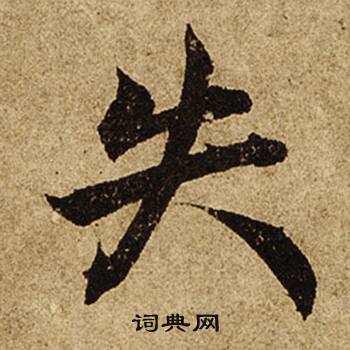 失
词典网